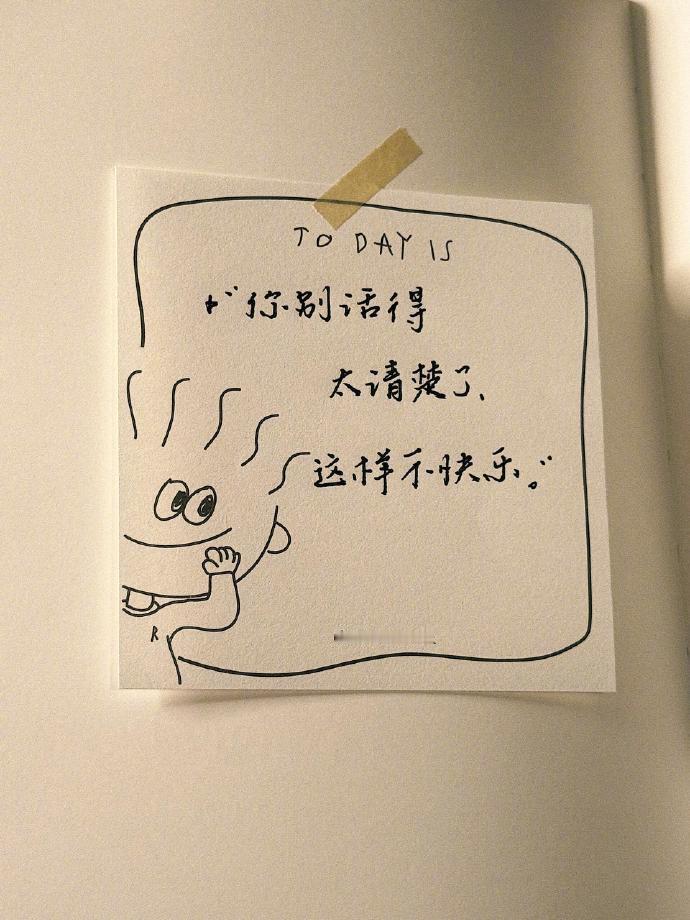 TO DAY IS
“你别活得
太清楚了、
这样不快乐。”
R